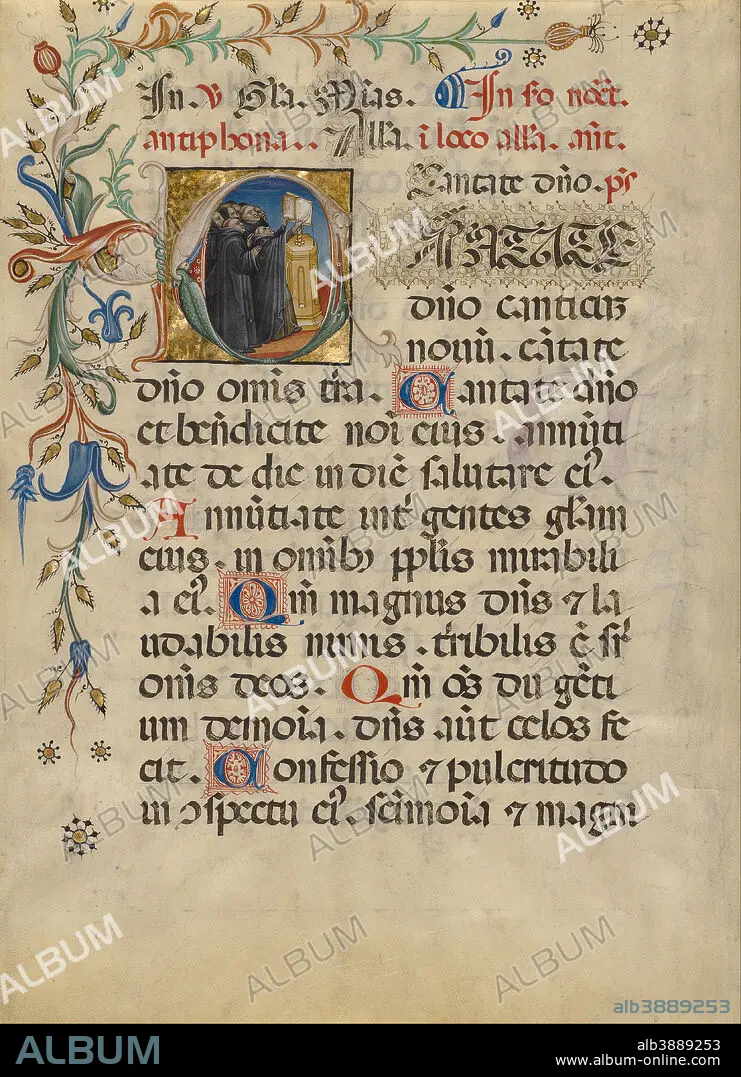 In. V Gla. Mias. In fo noct.
antiphona.. Alla. i loco alla. ant.
Cantate dño. ps
CANTATE
dño canticuz
nouū. cātate
dño omīs tr̄a. Cantate dño
et beñdicite noī eius. annūti
ate de die in diē salutare ei⁹.
Annūtiate int̄ gentes glām
eius. in omīb⁹ pplīs mirabili
a ei⁹. Qm̄ magnus dñs ⁊ la
udabilis nimis. tr̄ibilis ē sr̄
omīs deos. Qm̄ oēs du gēti
um demoīa. dñs aūt celos fe
cit. Confessio ⁊ pulcritudo
in ɔspectu ei⁹. scīmoīa ⁊ magni
ALBUM
alb3889253
ALBUM
alb3889253
www.album-online.com